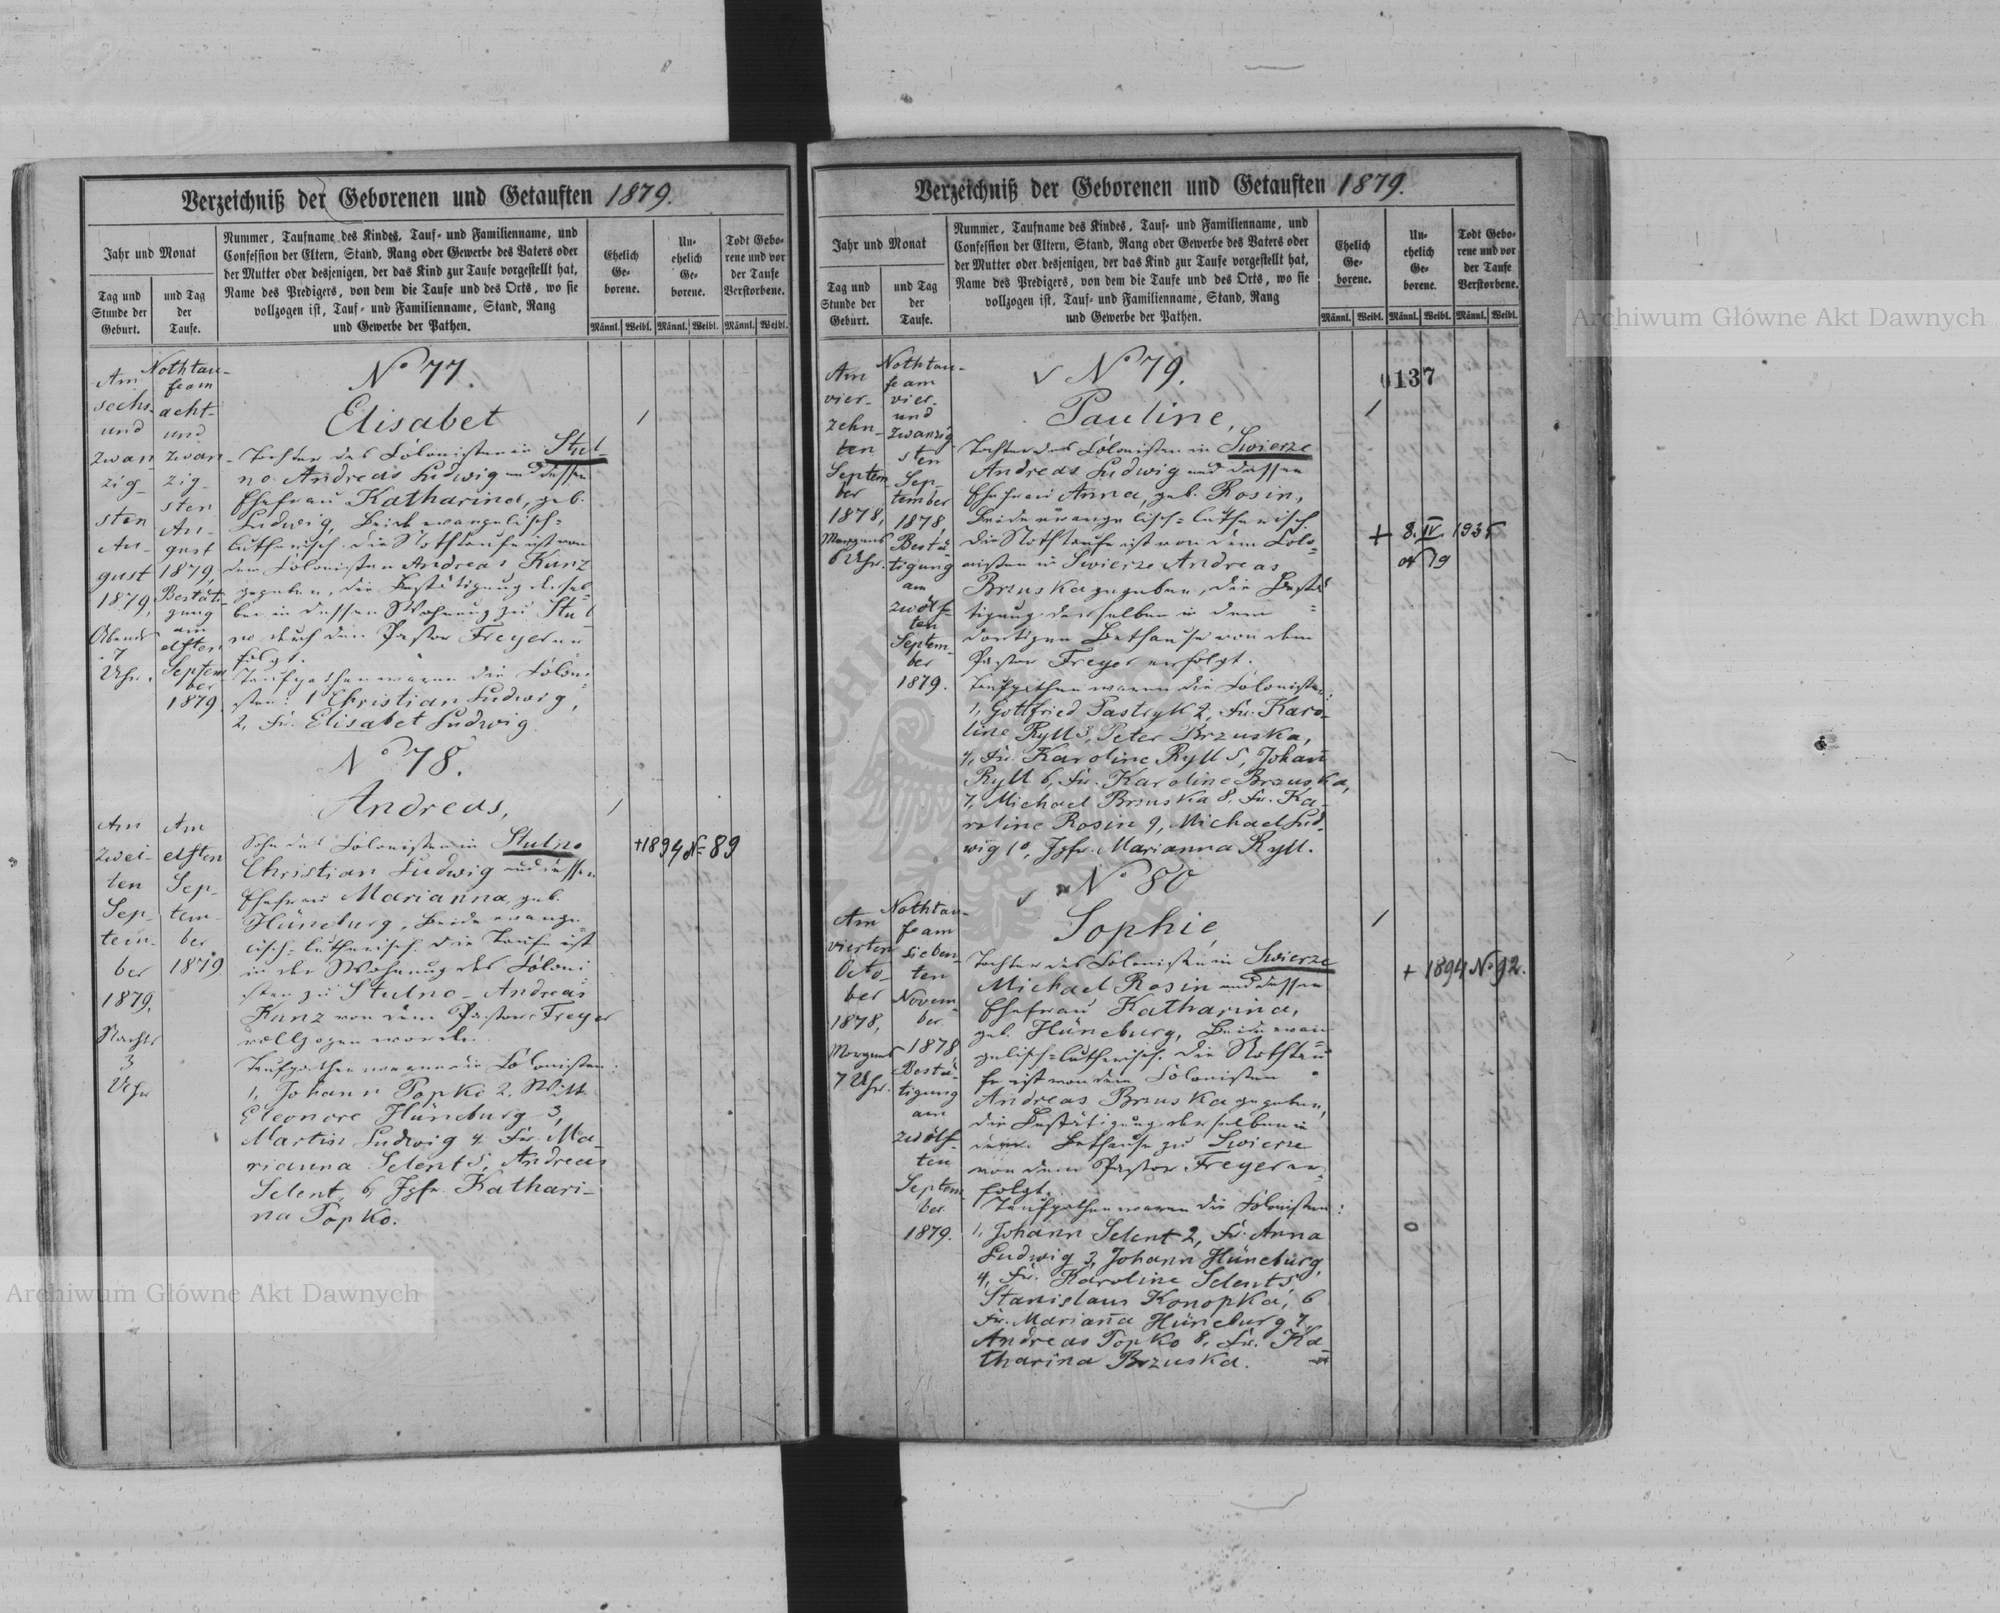 Verzeichniß der Geborenen und Getauften 1879.
Jahr und Monat
Tag und
Stunde der
Geburt.
und Tag
der
Taufe.
Nummer, Taufname des Kindes, Tauf- und Familienname, und
Confession der Eltern, Stand, Rang oder Gewerbe des Vaters oder
der Mutter oder desjenigen, der das Kind zur Taufe vorgestellt hat,
Name des Predigers, von dem die Taufe und des Orts, wo sie
vollzogen ist, Tauf- und Familienname, Stand, Rang
und Gewerbe der Pathen.
Ehelich
Ge-
borene.
Un-
ehelich
Ge-
borene.
Todt Gebo-
rene und vor
der Taufe
Verstorbene.
Männl. Weibl. Männl. Weibl. Männl. Weibl.
Am
sechs-
und
zwan-
zig-
sten
Au-
gust
1879,
Abends
7
Uhr.
Nothtau-
fe am
acht-
und
zwan-
zig-
sten
Au-
gust
1879,
Bestäti-
gung
am
elften
Septem
ber
1879
No 77.
Elisabet
Tochter des Colonisten in Stul-
no Andreas Ludwig und dessen
Ehefrau Katharina, geb.
Ludwig, Beide evangelisch-
lutherisch. Die Nothtaufe ist von
dem Colonisten Andreas Kunz
gegeben, die Bestätigung dersel-
ben in dessen Wohnung zu Stul
no durch den Pastor Freyer er
folgt.
Taufpathen waren die Coloni-
sten: 1 Christian Ludwig,
2, Fr. Elisabet Ludwig.
Am
zwei-
ten
Sep-
tem-
ber
1879,
Nachts
3
Uhr
Am
elften
Sep-
tem-
ber
1879
No 78.
Andreas,
Sohn des Colonisten in Stulno
Christian Ludwig und dessen
Ehefrau Marianna, geb.
Hüneburg, Beide evange-
lisch-lutherisch. Die Taufe ist
in der Wohnung des Coloni
sten zu Stulno - Andreas
Kunz von dem Pastor Freyer
vollzogen worden.
Taufpathen waren die Colonisten:
1, Johann Popko 2. Witt.
Eleonore Hüneburg 3,
Martin Ludwig 4 Fr. Ma-
rianna Selent 5, Andreas
Selent, 6, Jgfr. Kathari-
na Popko.
+1894 No 89
Verzeichniß der Geborenen und Getauften 1879.
Jahr und Monat
Tag und
Stunde der
Geburt.
und Tag
der
Taufe.
Nummer, Taufname des Kindes, Tauf- und Familienname, und
Confession der Eltern, Stand, Rang oder Gewerbe des Vaters oder
der Mutter oder desjenigen, der das Kind zur Taufe vorgestellt hat,
Name des Predigers, von dem die Taufe und des Orts, wo sie
vollzogen ist, Tauf- und Familienname, Stand, Rang
und Gewerbe der Pathen.
Ehelich
Ge-
borene.
Un-
ehelich
Ge-
borene.
Todt Gebo-
rene und vor
der Taufe
Verstorbene.
Männl. Weibl. Männl. Weibl. Männl. Weibl.
Am
vier-
zehn-
ten
Septem
ber
1878,
Morgens
6 Uhr.
Nothtau-
fe am
vier-
und
zwanzig
sten
Sep-
tember
1878,
Bestä-
tigung
am
zwölf-
ten
Septem-
ber
1879.
No 79.
Pauline,
Tochter des Colonisten in Swierze
Andreas Ludwig und dessen
Ehefrau Anna, geb. Rosin,
Beide evangelisch-lutherisch.
Die Nothtaufe ist von dem Colo-
nisten in Swierze Andreas
Brzuska gegeben, die Bestä-
tigung derselben in dem
dortigen Bethause von dem
Pastor Freyer erfolgt.
Taufpathen waren die Colonisten:
1, Gottfried Pastryk 2, Fr. Karo-
line Ryll 3, Peter Brzuska,
4, Fr. Karoline Ryll 5, Johan̄
Ryll 6, Fr. Karoline Brzuska,
7, Michael Brzuska 8, Fr. Ka-
roline Rosin 9, Michael Lud-
wig 10, Jgfr. Marianna Ryll.
0137
+ 8. IV. 1935
No 19
Am
vierten
Octo-
ber
1878,
Morgens
7 Uhr.
Nothtau-
fe am
sieben-
ten
Novem-
ber
1878
Bestä-
tigung
am
zwölf-
ten
Septem-
ber
1879.
No 80
Sophie,
Tochter des Colonisten in Swierze
Michael Rosin und dessen
Ehefrau Katharina,
geb. Hüneburg, Beide evan-
gelisch-lutherisch. Die Nothtau-
fe ist von dem Colonisten
Andreas Brzuska gegeben,
die Bestätigung derselben in
dem Bethause zu Swierze
von dem Pastor Freyer er-
folgt.
Taufpathen waren die Colonisten:
1, Johann Selent 2, Fr. Anna
Ludwig 3, Johann Hüneburg,
4, Fr. Karoline Selent 5
Stanislaus Konopka, 6
Fr. Marian̄a Hüneburg 7,
Andreas Popko 8, Fr. Ka-
tharina Brzuska.
+ 1894 No 92.
Archiwum Główne Akt Dawnych
Archiwum Główne Akt Dawnych